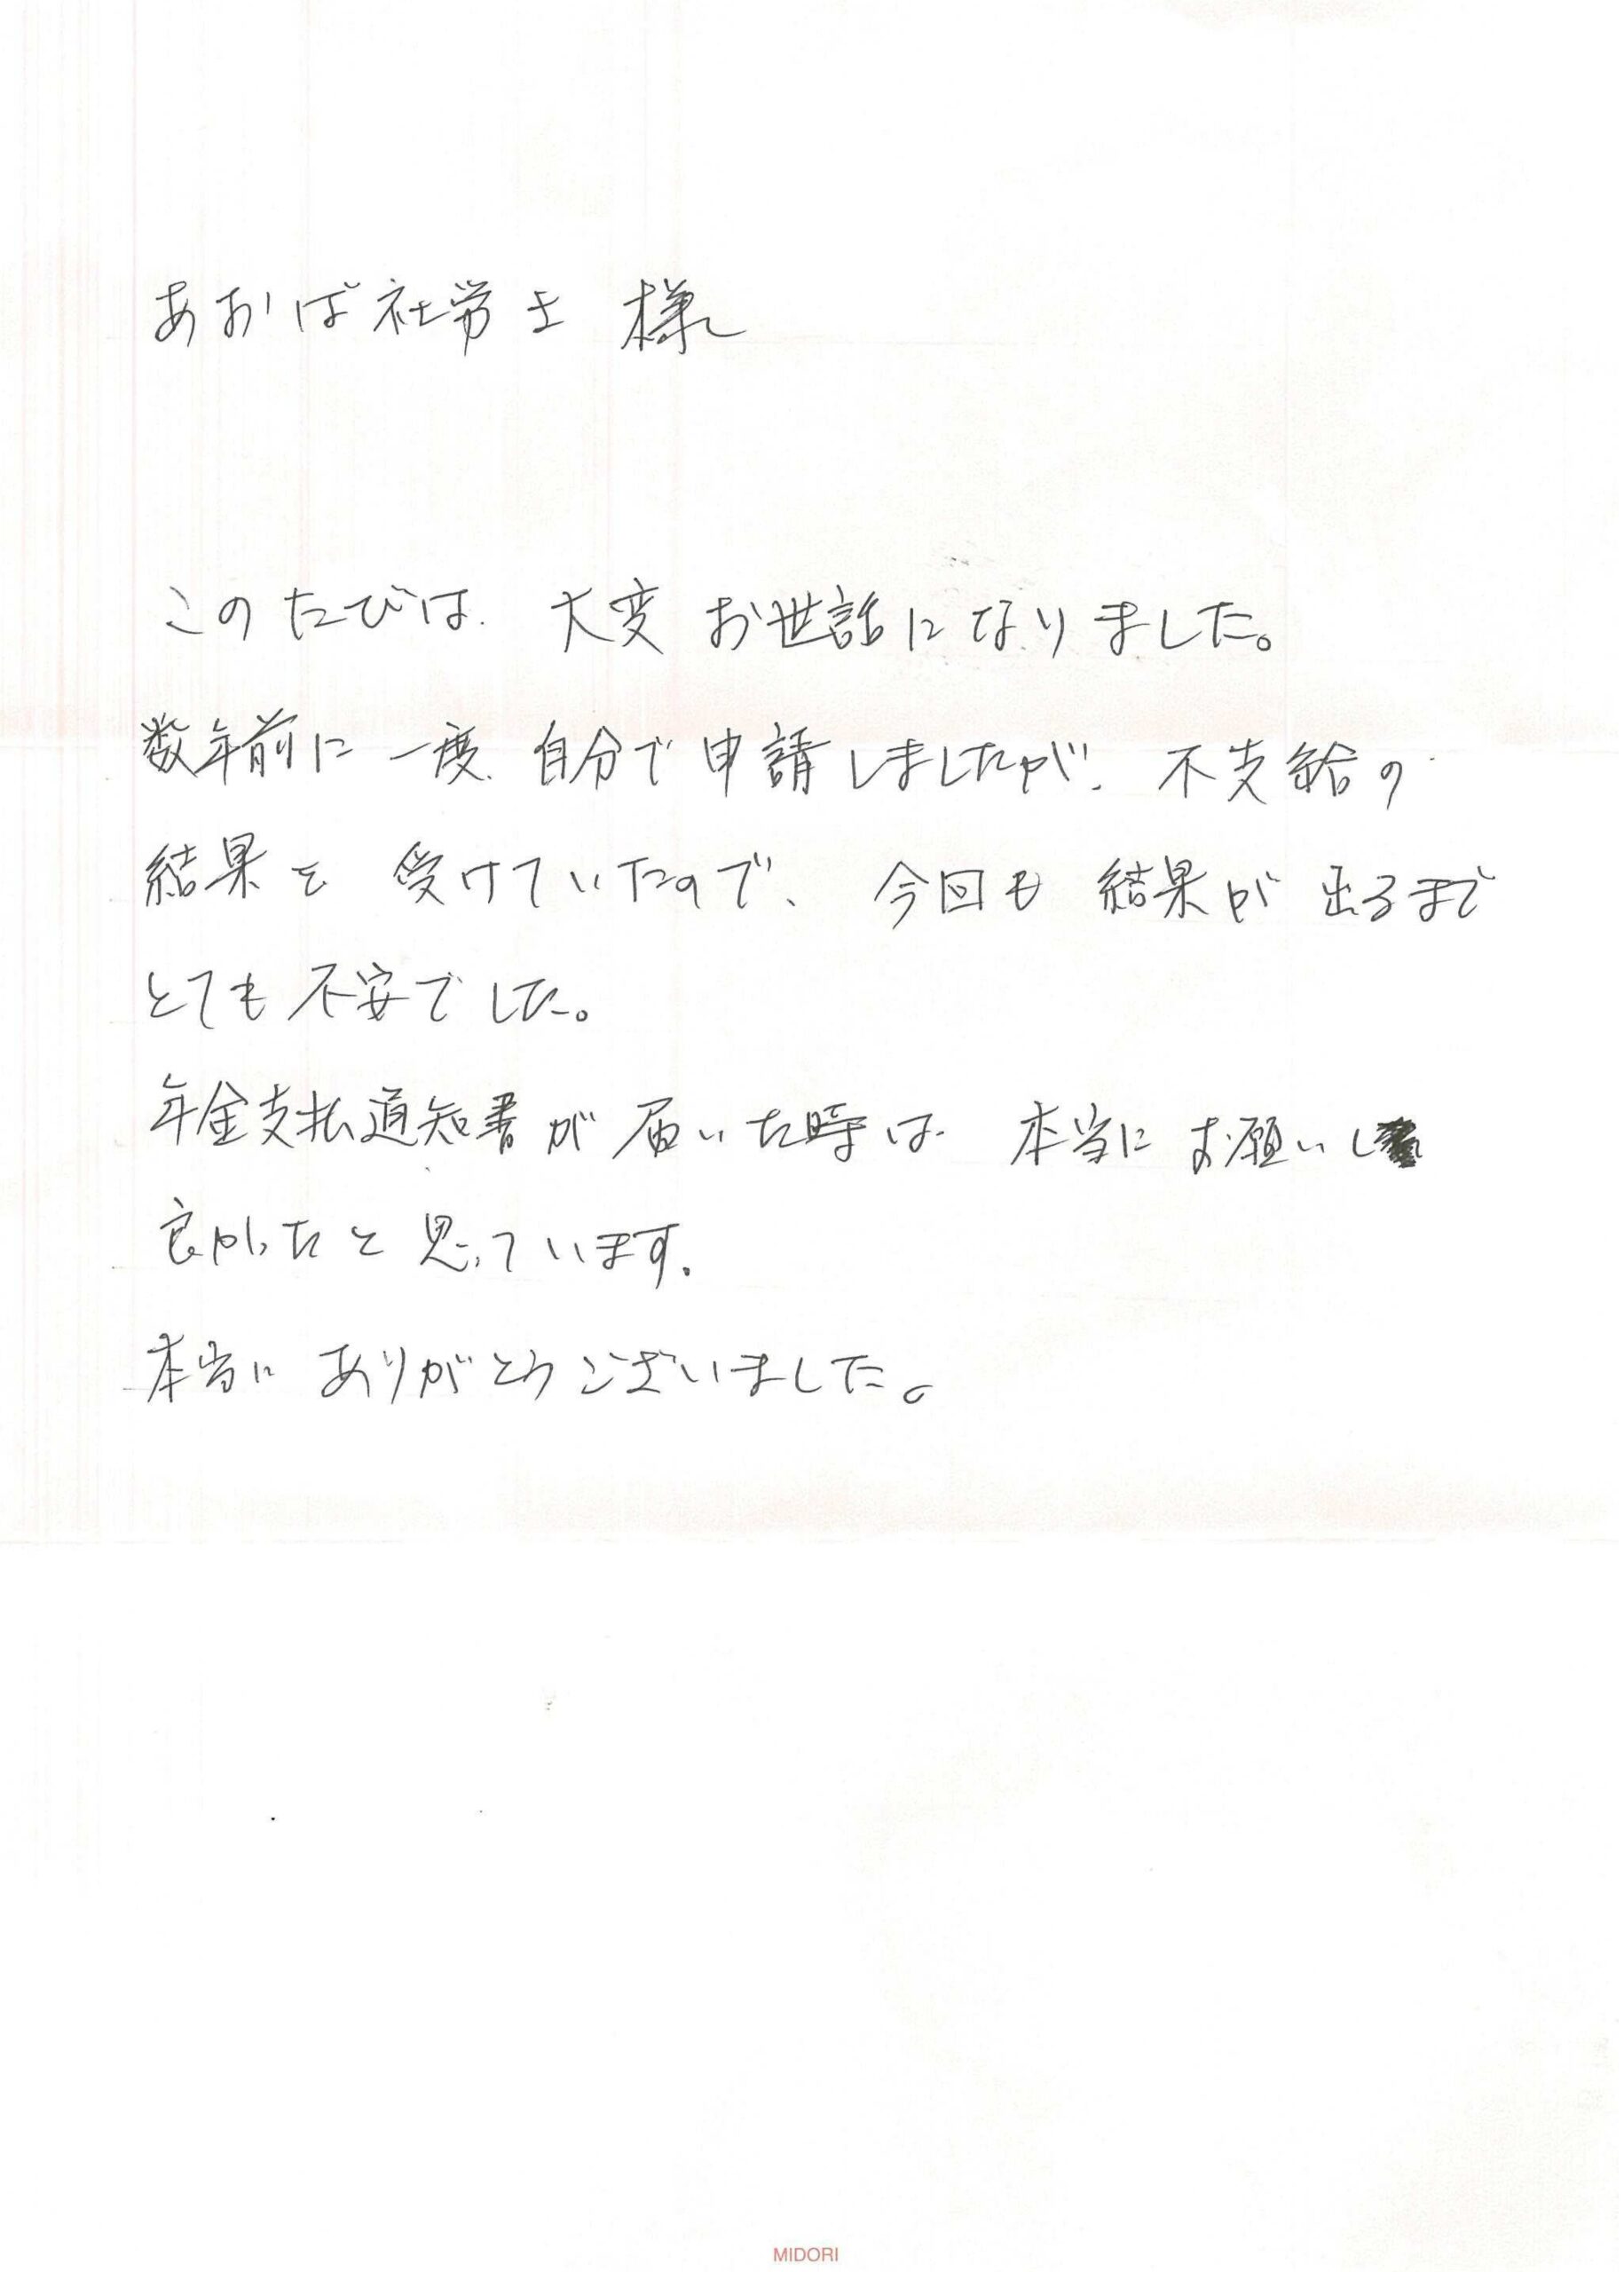 あおば社労士 様
このたびは、大変お世話になりました。
数年前に一度、自分で申請しましたが、不支給の
結果を 受けていたので、今回も 結果が 出るまで
とても不安でした。
年金支払通知書が 届いた時は 本当に お願いし
良かったと 思っています。
本当に ありがとうございました。
MIDORI